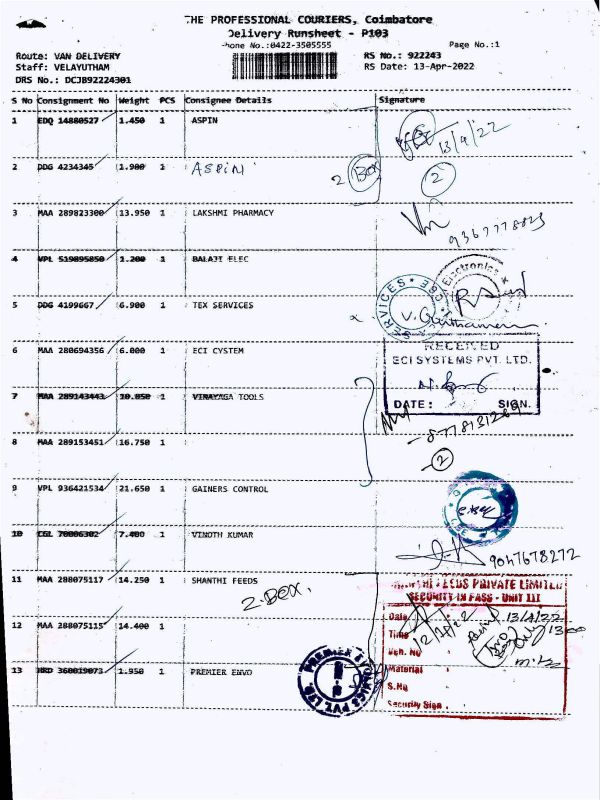 THE PROFESSIONAL COURIERS, Coimbatore
Delivery Runsheet - P103
Phone No.:0422-3505555
Page No.:1
Route: VAN DELIVERY
RS No.: 922243
Staff: VELAYUTHAM
RS Date: 13-Apr-2022
DRS No.: DCJB92224301
S No Consignment No Weight PCS Consignee Details Signature
1 EDQ 14880527 1.450 1 ASPIN
13/4/22
2 DDG 4234345 1.900 1 ASPIN
2 Box
2
3 MAA 289823300 13.950 1 LAKSHMI PHARMACY
4 VPL 519895850 1.200 1 BALAJI ELEC
Electronics
SERVICES
CBE
5 DDG 4199667 6.900 1 TEX SERVICES
6 MAA 280694356 6.000 1 ECI CYSTEM
RECEIVED
ECI SYSTEMS PVT. LTD.
DATE: SIGN.
7 MAA 289143443 10.050 1 VINAYAGA TOOLS
8 MAA 289153451 16.750 1
2
9 VPL 936421534 21.650 1 GAINERS CONTROL
10 CGL 70006302 7.400 1 VINOTH KUMAR
9047678272
11 MAA 288075117 14.250 1 SHANTHI FEEDS
2. BOX.
FEEDS PRIVATE LIMITED
SECURITY IN PASS - UNIT III
Date 13/4/22
Time
12 MAA 288075115 14.400 1
Veh. No
Material
13 HRD 360019073 1.950 1 PREMIER ENVO
S.No
Security Sign